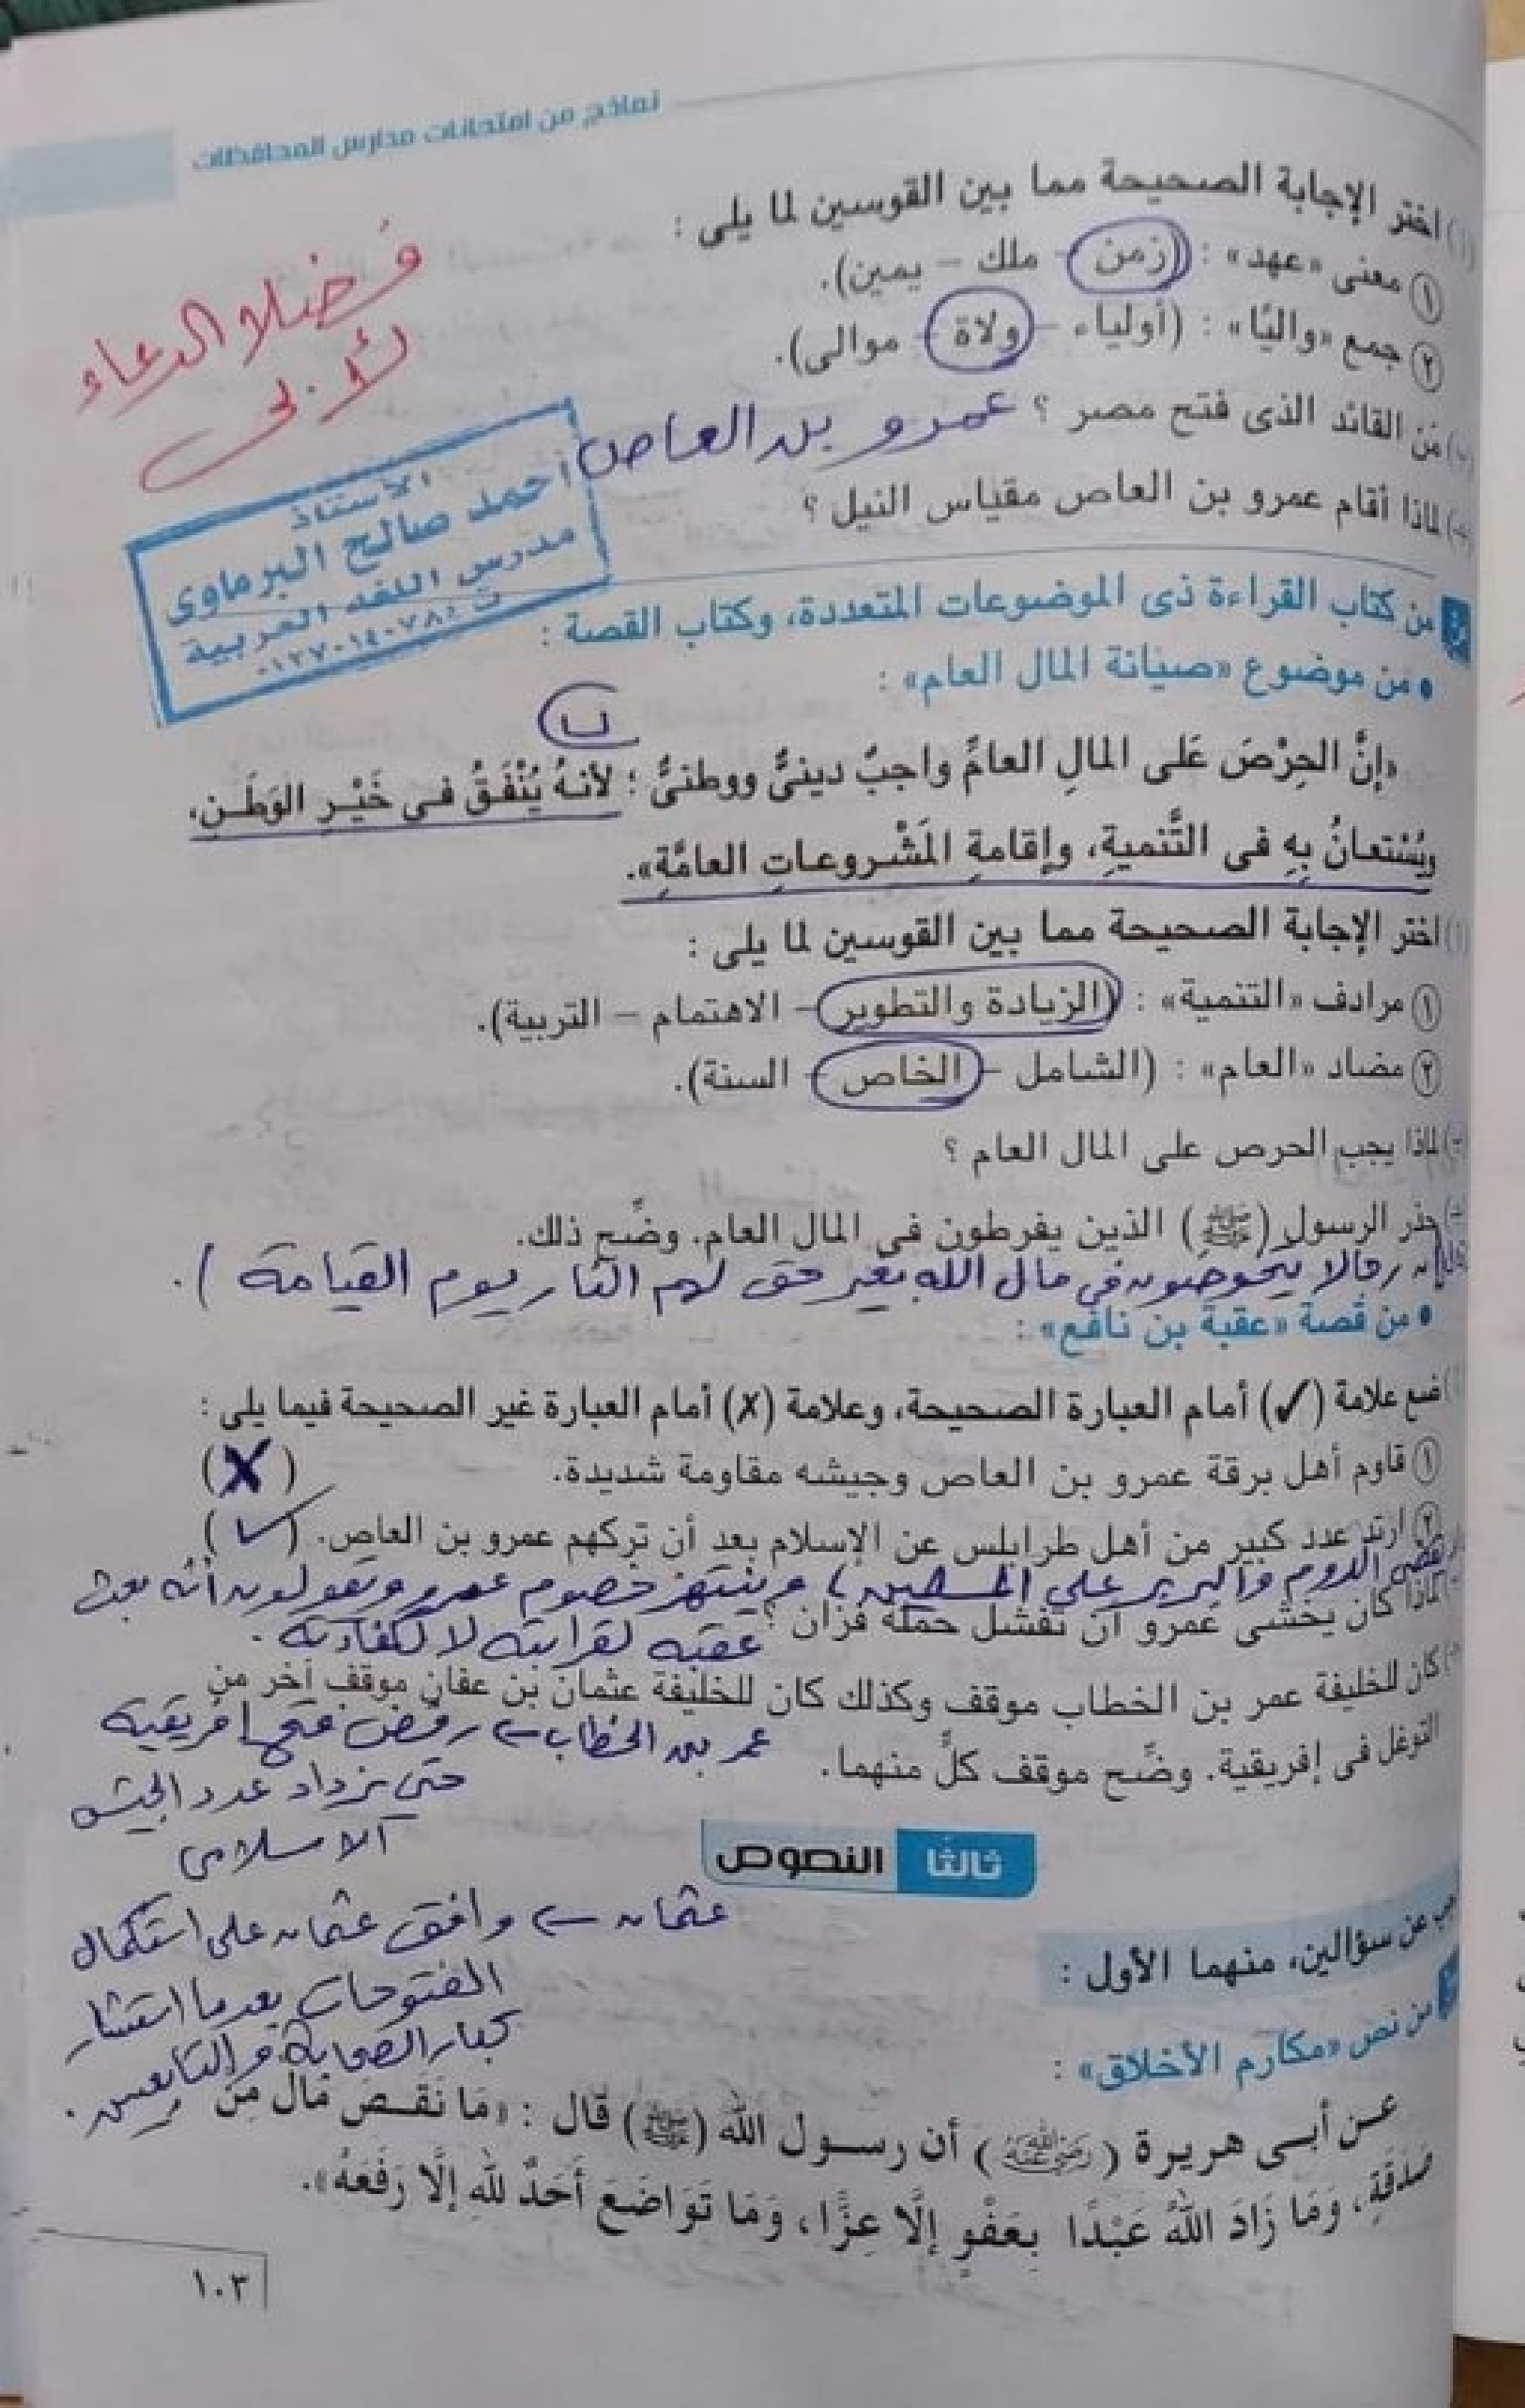 نماذج من امتحانات مدارس المحافظات
(أ) اختر الإجابة الصحيحة مما بين القوسين لما يلى :
١ معنى «عهد» : (زمن - ملك - يمين).
٢ جمع «واليًا» : (أولياء - ولاة - موالى).
(ب) مَن القائد الذى فتح مصر ؟ عمرو بن العاص
(ج) لماذا أقام عمرو بن العاص مقياس النيل ؟
فضلا الدعاء
لأبى
الأستاذ
أحمد صالح البرماوى
مدرس اللغة العربية
من كتاب القراءة ذى الموضوعات المتعددة، وكتاب القصة :
• من موضوع «صيانة المال العام» :
ب
«إنَّ الحِرْصَ عَلى المالِ العامِّ واجبٌ دينىٌّ ووطنىٌّ ؛ لأنهُ يُنْفَقُ فى خَيْرِ الوَطَنِ،
ويُسْتعانُ بِهِ فى التَّنميةِ، وإقامةِ المَشْروعاتِ العامَّةِ».
(أ) اختر الإجابة الصحيحة مما بين القوسين لما يلى :
١ مرادف «التنمية» : (الزيادة والتطوير - الاهتمام - التربية).
٢ مضاد «العام» : (الشامل - الخاص - السنة).
(ب) لماذا يجب الحرص على المال العام ؟
(ج) حذر الرسول (ﷺ) الذين يفرطون فى المال العام. وضِّح ذلك.
رجالا يتخوضون فى مال الله بغير حق لهم النار يوم القيامة ).
• من قصة «عقبة بن نافع» :
(أ) ضع علامة (✓) أمام العبارة الصحيحة، وعلامة (✗) أمام العبارة غير الصحيحة فيما يلى :
١ قاوم أهل برقة عمرو بن العاص وجيشه مقاومة شديدة. (✗)
٢ ارتد عدد كبير من أهل طرابلس عن الإسلام بعد أن تركهم عمرو بن العاص. (✓)
الروم والبربر على المسلمين، وينتهز خصوم عمرو ويقولون أنه بعث
(ب) لماذا كان يخشى عمرو أن تفشل حملة فزان ؟ عقبة لقرابته لا لكفاءته.
(ج) كان للخليفة عمر بن الخطاب موقف وكذلك كان للخليفة عثمان بن عفان موقف آخر من
التوغل فى إفريقية. وضِّح موقف كلٍّ منهما.
عمر بن الخطاب ← رفض فتح إفريقية
حتى يزداد عدد الجيش
الاسلامى
ثالثًا النصوص
عثمان ← وافق عثمان على استكمال
الفتوحات بعدما استشار
كبار الصحابة والتابعين.
أجب عن سؤالين، منهما الأول :
من نص «مكارم الأخلاق» :
عن أبى هريرة (رضي الله عنه) أن رسول الله (ﷺ) قال : «مَا نَقَصَ مَالٌ مِنْ
صَدَقَةٍ، وَمَا زَادَ اللهُ عَبْدًا بِعَفْوٍ إلَّا عِزًّا، وَمَا تَوَاضَعَ أَحَدٌ للهِ إلَّا رَفَعَهُ».
١٠٣